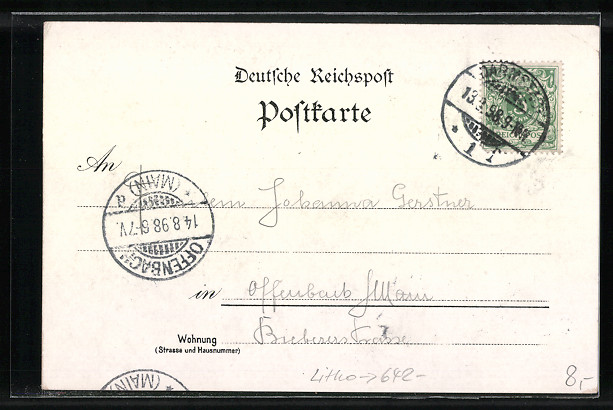 Deutsche Reichspost
Postkarte
DARMSTADT
13.8.98.8-9N.
* 1 r
REICHSPOST
An
Johanna Gerstner
* (MAIN)
14.8.98.6-7V.
OFFENBACH
in Offenbach Main
Wohnung
(Strasse und Hausnummer)
Biebererstrasse
Litho → 642-
8,-
(MAIN) *